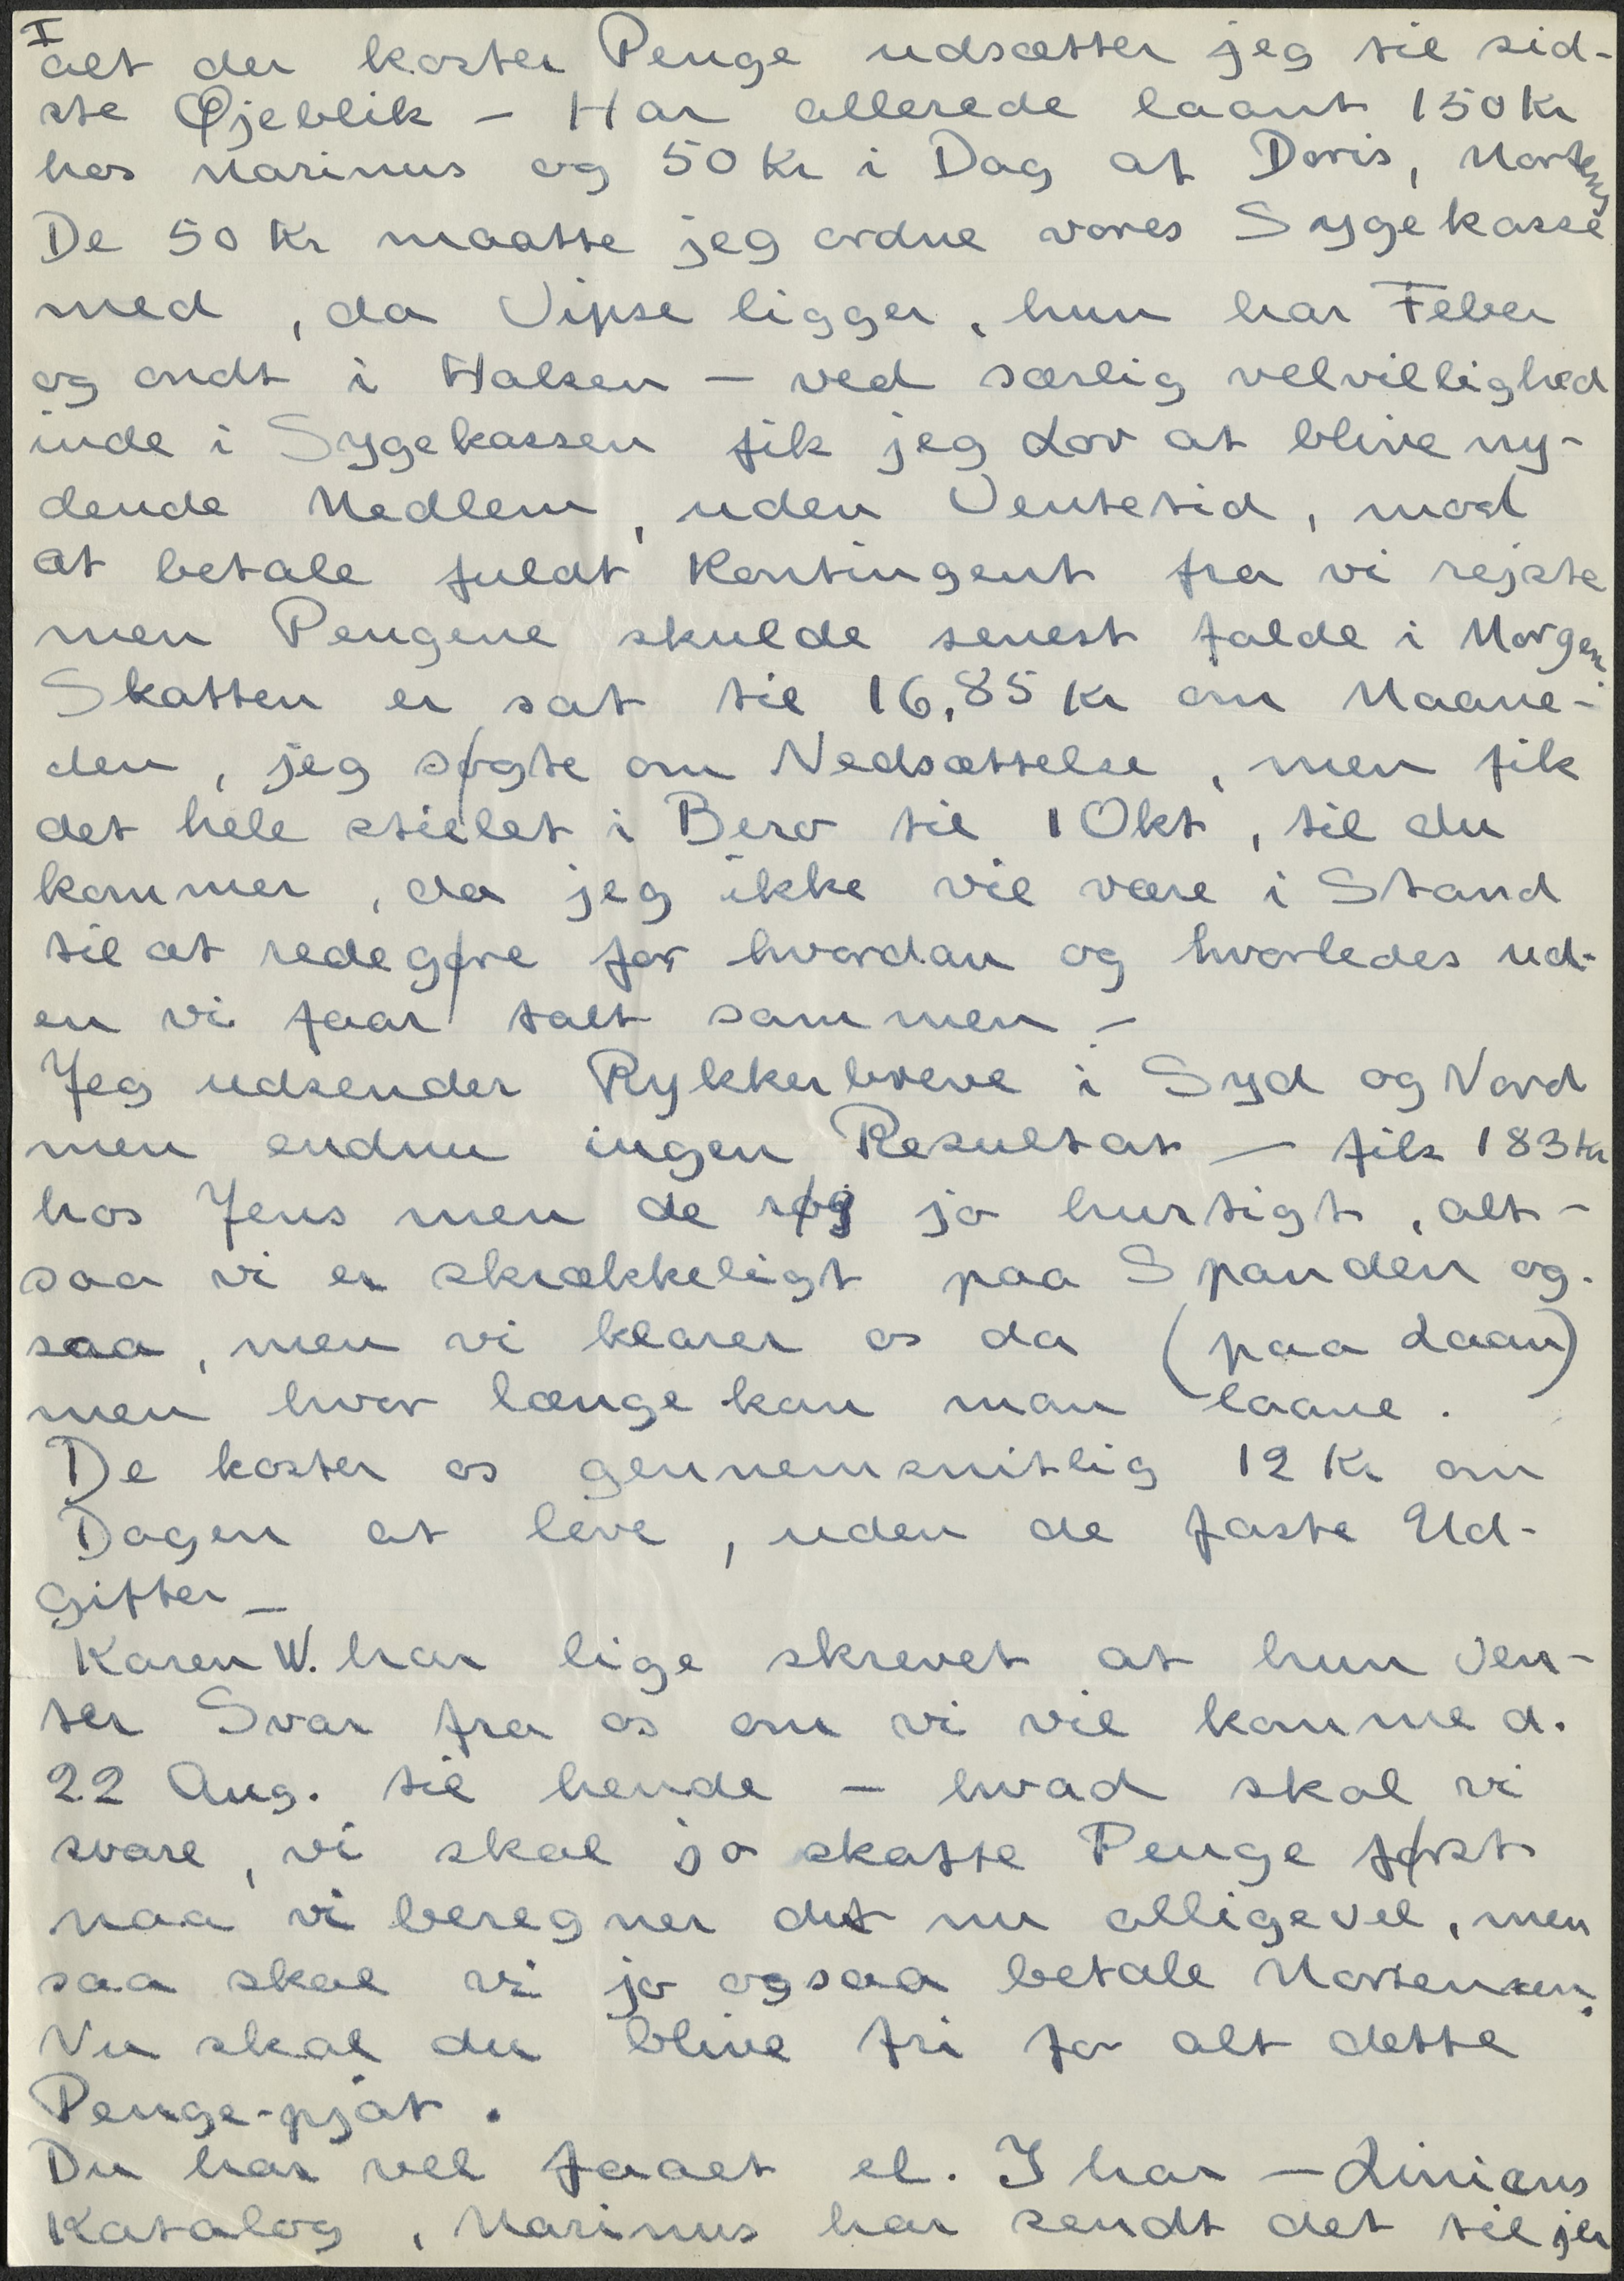 I
alt der koster Penge udsætter jeg til sid-
ste Øjeblik – Har allerede laant 150 Kr
hos Marinus og 50 Kr i Dag af Doris, Mortens
De 50 Kr maatte jeg ordne vores Sygekasse
med, da Vipse ligger, hun har Feber
og ondt i Halsen – ved særlig velvillighed
inde i Sygekassen fik jeg Lov at blive ny-
dende Medlem, uden Ventetid, mod
at betale fuldt Kontingent fra vi rejste
men Pengene skulde senest falde i Morgen
Skatten er sat til 16,85 Kr om Maane-
den, jeg søgte om Nedsættelse, men fik
det hele stillet i Bero til 1 Okt, til du
kommer, da jeg ikke vil være i Stand
til at redegøre for hvordan og hvorledes ud-
en vi faar talt sammen –
Jeg udsender Rykkerbreve i Syd og Nord
men endnu ingen Resultat – fik 183 Kr
hos Jens men de røg jo hurtigt, alt-
saa vi er skrækkeligt paa Spanden og-
saa, men vi klarer os da (paa Laan)
men hvor længe kan man laane.
De koster os gennemsnitlig 12 Kr om
Dagen at leve, uden de faste Ud-
gifter –
Karen W. har lige skrevet at hun ven-
ter Svar fra os om vi vil komme d.
22 Aug. til hende – hvad skal vi
svare, vi skal jo skaffe Penge først
naa vi beregner det nu alligevel, men
saa skal vi jo ogsaa betale Mortensen.
Nu skal du blive fri for alt dette
Penge-pjat.
Du har vel faaet el. I har – Liniens
Katalog, Marinus har sendt det til jer